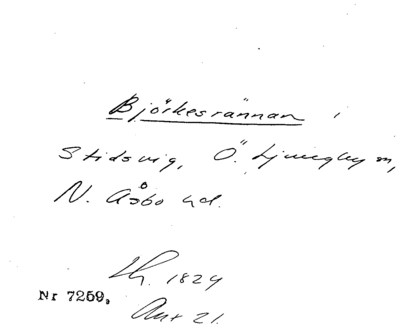 Björkesrännan
Stidsvig, Ö. Ljungby sn,
N. Åsbo hd.
Lh. 1824
Nr 7259,
Akt 21.